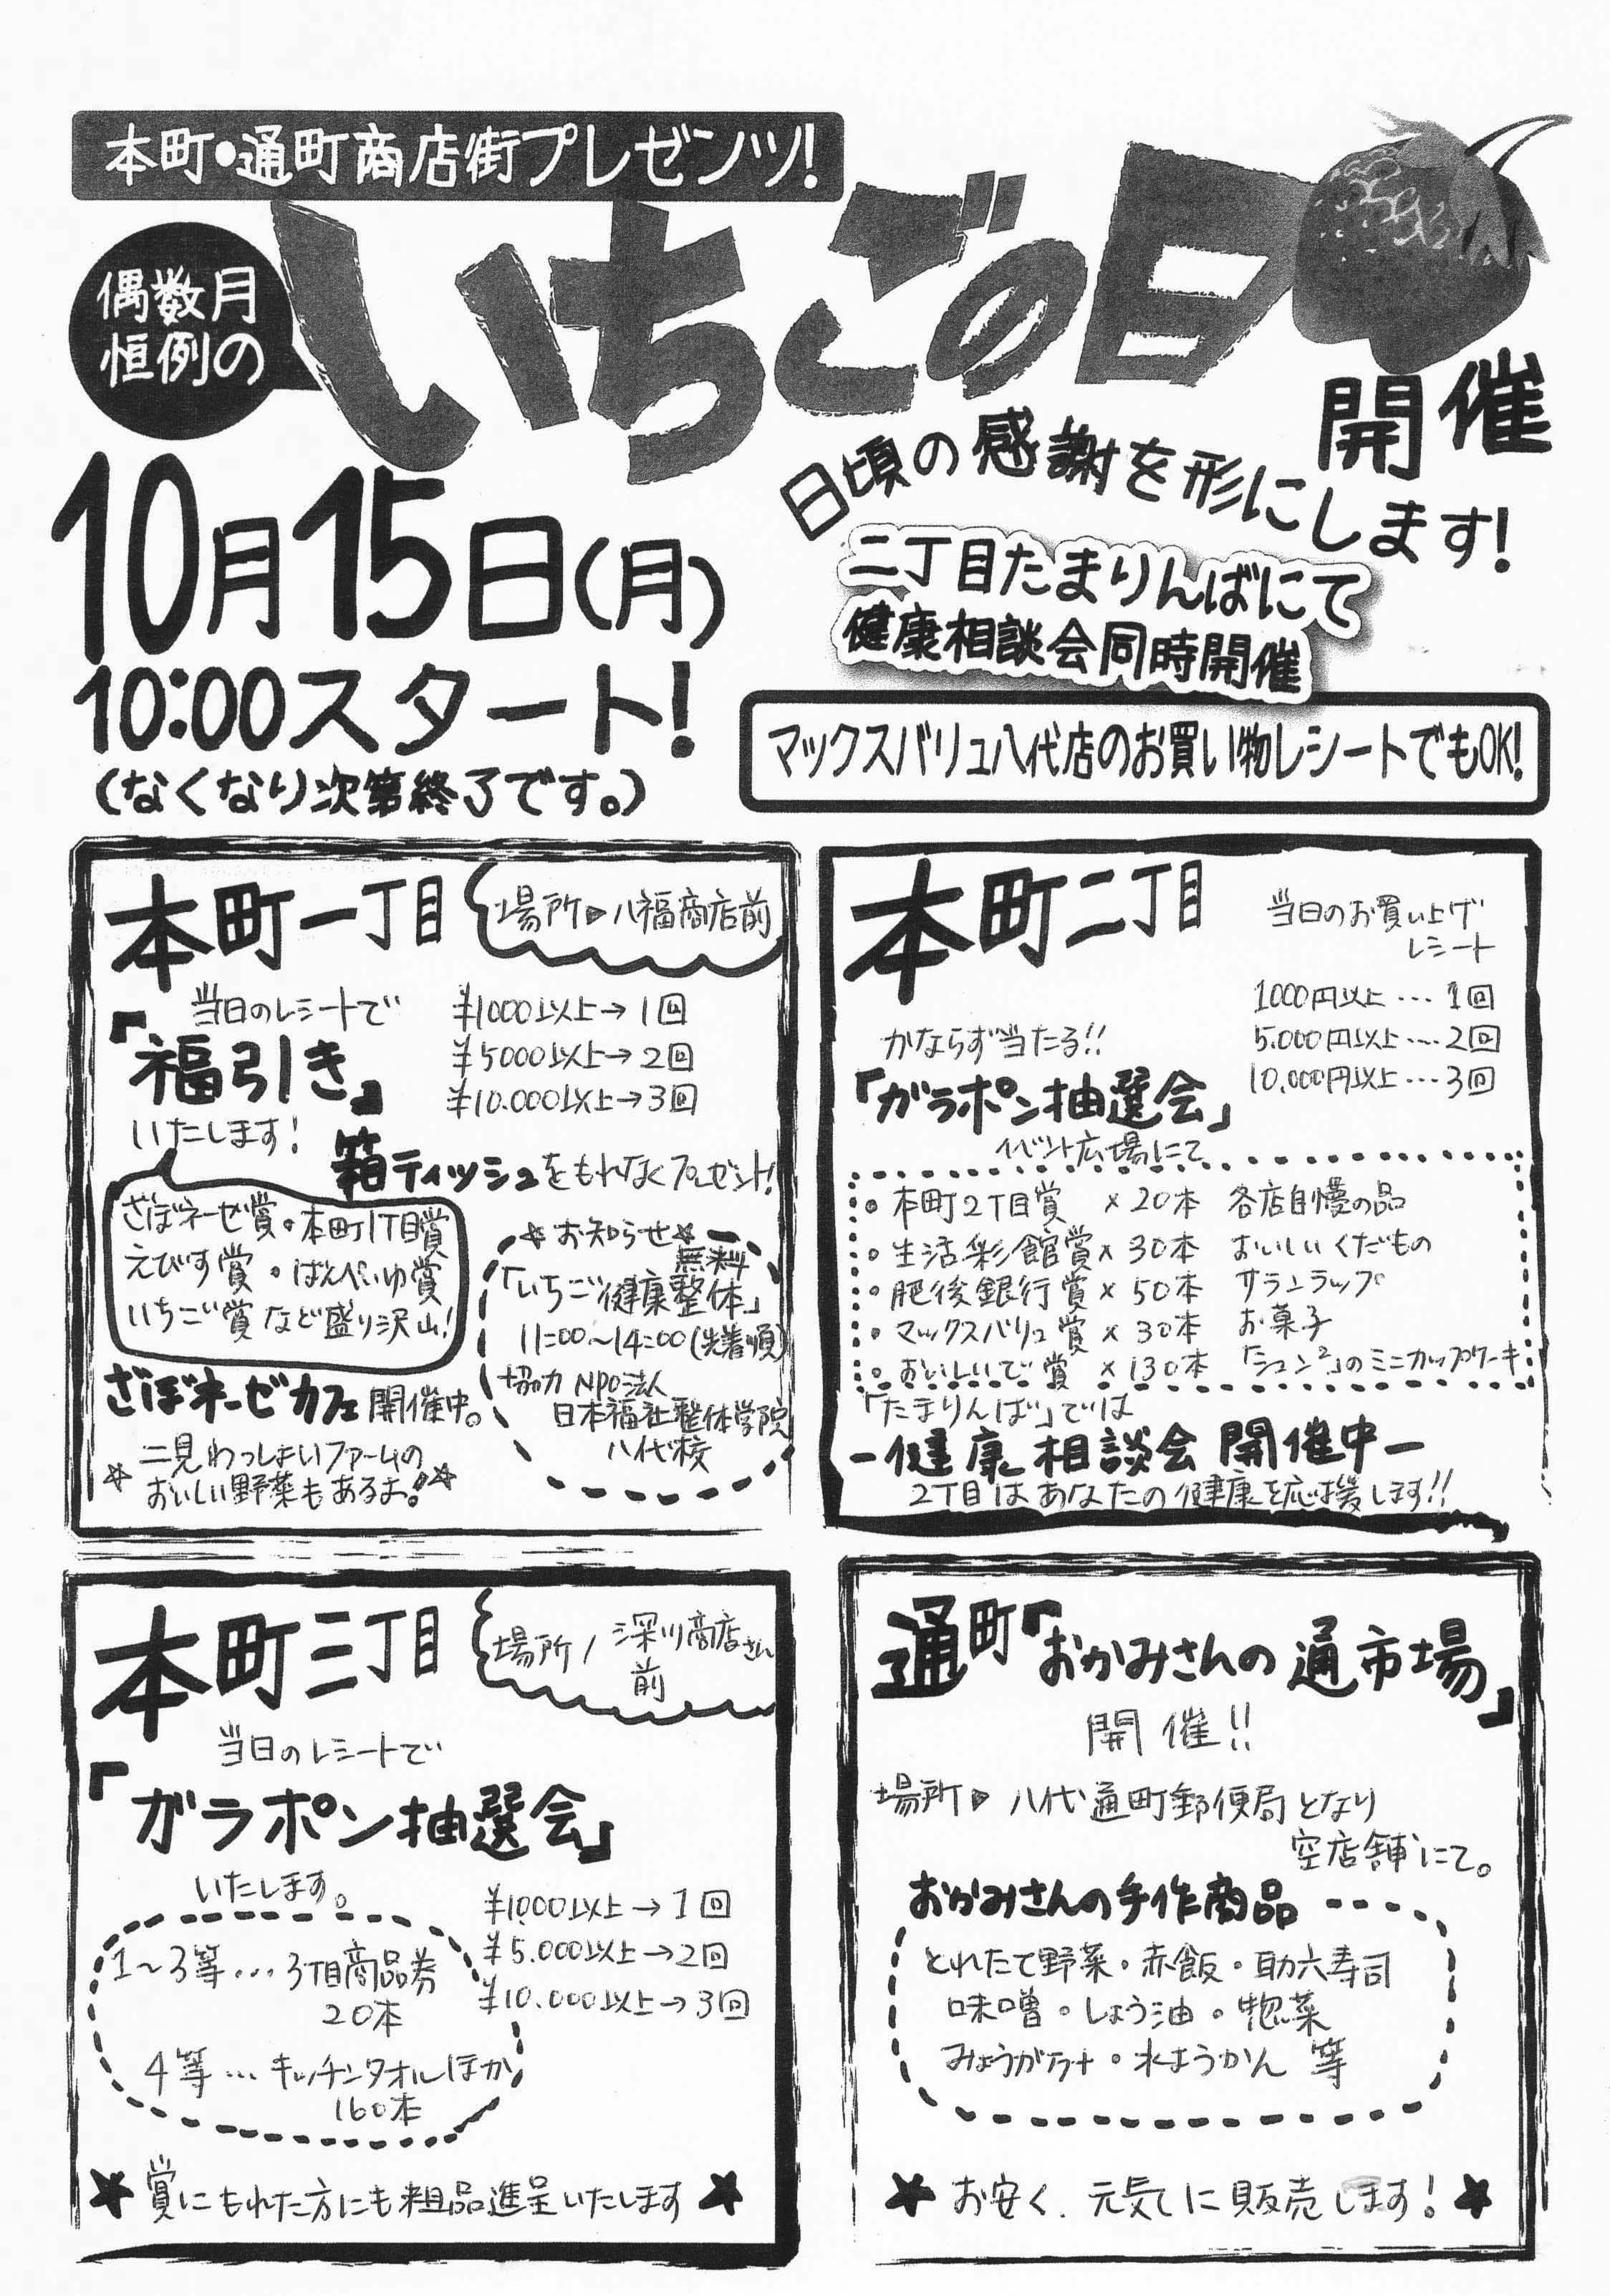 本町・通町商店街プレゼンツ!
偶数月
恒例の
いちごの日
開催
日頃の感謝を形にします!
10月15日(月)
10:00スタート!
(なくなり次第終了です。)
二丁目たまりんばにて
健康相談会同時開催
マックスバリュ八代店のお買い物レシートでもOK!
本町一丁目
場所▷八福商店前
当日のレシートで
「福引き」
いたします!
¥1000以上→1回
¥5000以上→2回
¥10.000以上→3回
箱ティッシュをもれなくプレゼント!
ざぼネーゼ賞・本町1丁目賞
えびす賞・ばんぺいゆ賞
いちご賞など盛り沢山!
☆お知らせ☆
無料
「いちご健康整体」
11:00〜14:00(先着順)
協力 NPO法人
日本福祉整体学院
八代校
ざぼネーゼカフェ開催中。
☆二見わっしょいファームの
おいしい野菜もあるよ。☆
本町二丁目
当日のお買い上げ
レシート
1000円以上…1回
5.000円以上…2回
10.000円以上…3回
かならず当たる!!
「ガラポン抽選会」
イベント広場にて
・本町2丁目賞 ×20本 各店自慢の品
・生活彩館賞×30本 おいしいくだもの
・肥後銀行賞×50本 サランラップ
・マックスバリュ賞×30本 お菓子
・おいしいで賞×130本 「シュン²」のミニカップケーキ
「たまりんば」では
-健康相談会開催中-
2丁目はあなたの健康を応援します!!
本町三丁目
場所/深川商店さん
前
当日のレシートで
「ガラポン抽選会」
いたします。
¥1000以上→1回
¥5.000以上→2回
¥10.000以上→3回
1〜3等…3丁目商品券
20本
4等…キッチンタオルほか
160本
★賞にもれた方にも粗品進呈いたします★
通町「おかみさんの通市場」
開催!!
場所▷八代通町郵便局となり
空店舗にて。
おかみさんの手作商品
とれたて野菜・赤飯・助六寿司
味噌・しょう油・惣菜
みょうが汁・水ようかん 等
★お安く、元気に販売します!★